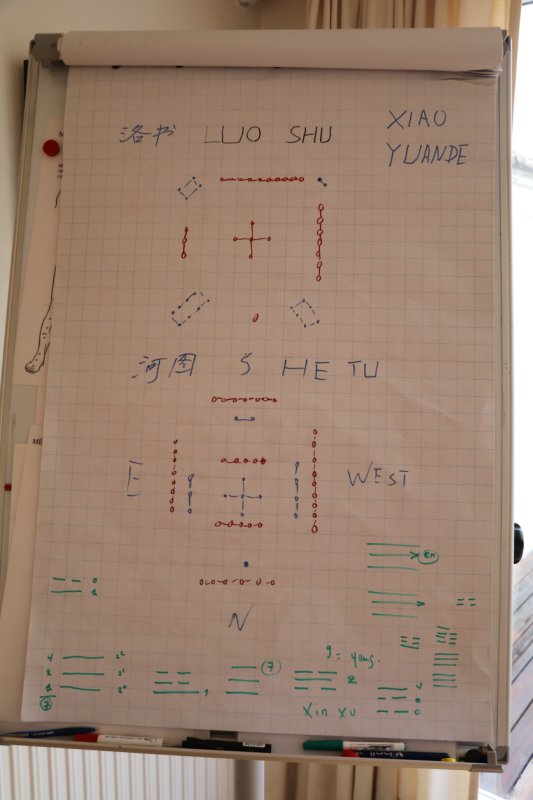 洛书 LUO SHU
XIAO
YUANDE
河图 S HE TU
E
WEST
N
0
1
4 2²
2 2¹
1 2⁰
7
1
7
9 = yang.
2
Xin xu
4
0
0